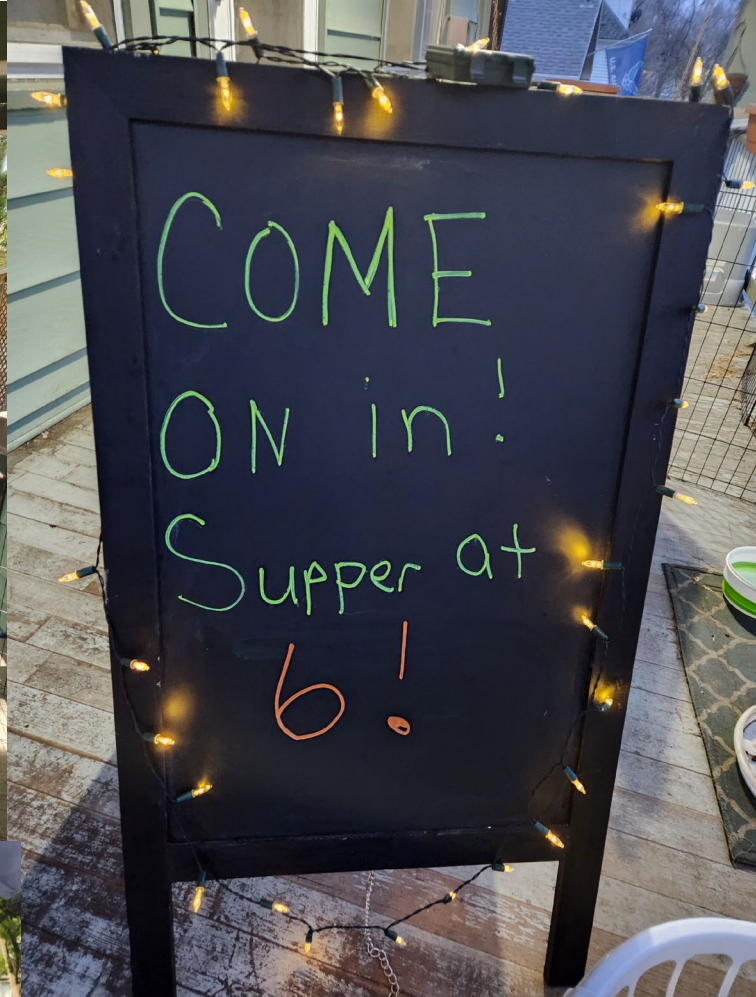 COME
ON in!
Supper at
6!